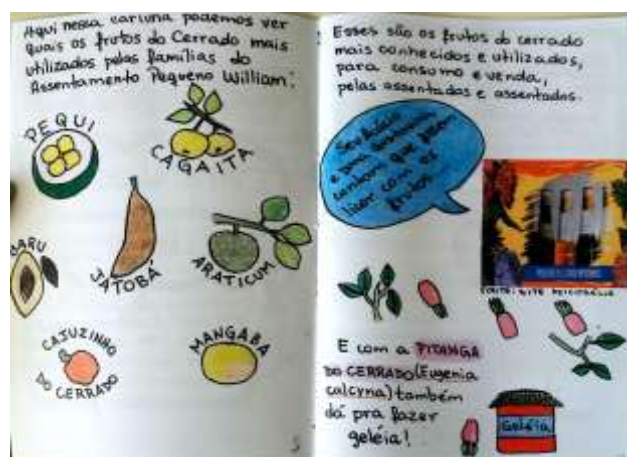 Aqui nessa cartilha podemos ver
quais os frutos do Cerrado mais
utilizados pelas famílias do
Assentamento Pequeno William:
PEQUI
CAGAITA
BARU
JATOBÁ
ARATICUM
CAJUZINHO
DO CERRADO
MANGABA
5
Esses são os frutos do cerrado
mais conhecidos e utilizados,
para consumo e venda,
pelas assentadas e assentados.
e dona
contam que fazem
licor com os
frutos
E com a PITANGA
DO CERRADO (Eugenia
calcyna) também
dá pra fazer
geléia!
Geléia